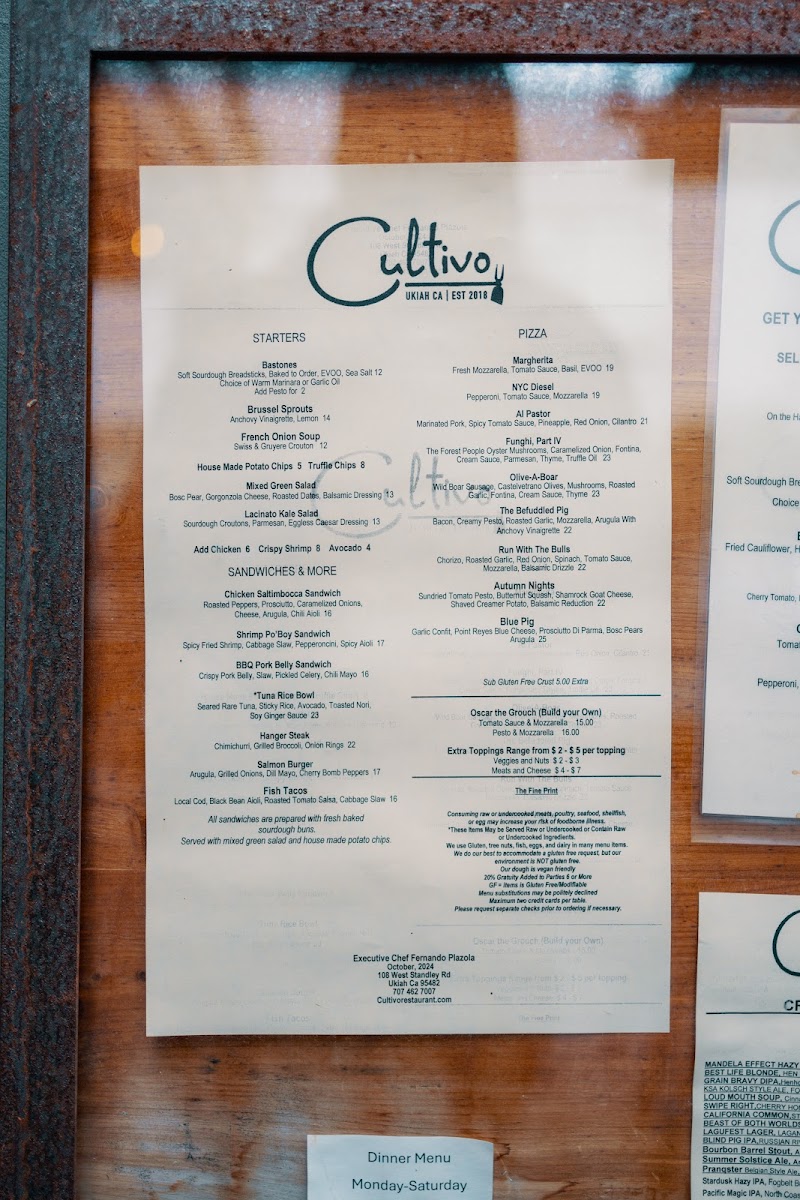 Cultivo
UKIAH CA | EST 2018
STARTERS
Bastones
Soft Sourdough Breadsticks, Baked to Order, EVOO, Sea Salt 12
Choice of Warm Marinara or Garlic Oil
Add Pesto for 2
Brussel Sprouts
Anchovy Vinaigrette, Lemon 14
French Onion Soup
Swiss & Gruyere Crouton 12
House Made Potato Chips 5 Truffle Chips 8
Mixed Green Salad
Bosc Pear, Gorgonzola Cheese, Roasted Dates, Balsamic Dressing 13
Lacinato Kale Salad
Sourdough Croutons, Parmesan, Eggless Caesar Dressing 13
Add Chicken 6 Crispy Shrimp 8 Avocado 4
SANDWICHES & MORE
Chicken Saltimbocca Sandwich
Roasted Peppers, Prosciutto, Caramelized Onions,
Cheese, Arugula, Chili Aioli 16
Shrimp Po'Boy Sandwich
Spicy Fried Shrimp, Cabbage Slaw, Pepperoncini, Spicy Aioli 17
BBQ Pork Belly Sandwich
Crispy Pork Belly, Slaw, Pickled Celery, Chili Mayo 16
*Tuna Rice Bowl
Seared Rare Tuna, Sticky Rice, Avocado, Toasted Nori,
Soy Ginger Sauce 23
Hanger Steak
Chimichurri, Grilled Broccoli, Onion Rings 22
Salmon Burger
Arugula, Grilled Onions, Dill Mayo, Cherry Bomb Peppers 17
Fish Tacos
Local Cod, Black Bean Aioli, Roasted Tomato Salsa, Cabbage Slaw 16
All sandwiches are prepared with fresh baked
sourdough buns.
Served with mixed green salad and house made potato chips.
PIZZA
Margherita
Fresh Mozzarella, Tomato Sauce, Basil, EVOO 19
NYC Diesel
Pepperoni, Tomato Sauce, Mozzarella 19
Al Pastor
Marinated Pork, Spicy Tomato Sauce, Pineapple, Red Onion, Cilantro 21
Funghi, Part IV
The Forest People Oyster Mushrooms, Caramelized Onion, Fontina,
Cream Sauce, Parmesan, Thyme, Truffle Oil 23
Olive-A-Boar
Wild Boar Sausage, Castelvetrano Olives, Mushrooms, Roasted
Garlic, Fontina, Cream Sauce, Thyme 23
The Befuddled Pig
Bacon, Creamy Pesto, Roasted Garlic, Mozzarella, Arugula With
Anchovy Vinaigrette 22
Run With The Bulls
Chorizo, Roasted Garlic, Red Onion, Spinach, Tomato Sauce,
Mozzarella, Balsamic Drizzle 22
Autumn Nights
Sundried Tomato Pesto, Butternut Squash, Shamrock Goat Cheese,
Shaved Creamer Potato, Balsamic Reduction 22
Blue Pig
Garlic Confit, Point Reyes Blue Cheese, Prosciutto Di Parma, Bosc Pears
Arugula 25
Sub Gluten Free Crust 5.00 Extra
Oscar the Grouch (Build your Own)
Tomato Sauce & Mozzarella 15.00
Pesto & Mozzarella 16.00
Extra Toppings Range from $ 2 - $ 5 per topping
Veggies and Nuts $ 2 - $ 3
Meats and Cheese $ 4 - $ 7
The Fine Print
Consuming raw or undercooked meats, poultry, seafood, shellfish,
or egg may increase your risk of foodborne illness.
*These Items May be Served Raw or Undercooked or Contain Raw
or Undercooked Ingredients.
We use Gluten, tree nuts, fish, eggs, and dairy in many menu items.
We do our best to accommodate a gluten free request, but our
environment is NOT gluten free.
Our dough is vegan friendly
20% Gratuity Added to Parties 6 or More
GF = Items is Gluten Free/Modifiable
Menu substitutions may be politely declined
Maximum two credit cards per table.
Please request separate checks prior to ordering if necessary.
Executive Chef Fernando Plazola
October, 2024
108 West Standley Rd
Ukiah Ca 95482
707 462 7007
Cultivorestaurant.com
Dinner Menu
Monday-Saturday
GET
SEL
On the
Soft Sourdough
Choice
Fried Cauliflower,
Cherry Tomato,
Pepperoni,
MANDELA EFFECT HAZY
BEST LIFE BLONDE, HEN
GRAIN BRAVY DIPA,
KSA KOLSCH STYLE ALE,
LOUD MOUTH SOUP,
SWIPE RIGHT, CHERRY
CALIFORNIA COMMON,
BEAST OF BOTH WORLDS
LAGUFEST LAGER,
BLIND PIG IPA, RUSSIAN
Bourbon Barrel Stout,
Summer Solstice Ale,
Pranqster Belgian Style Ale,
Stardusk Hazy IPA, Fogbelt
Pacific Magic IPA, North